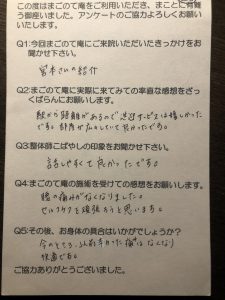 この度はまごのて庵をご利用いただき、まことに有難
う御座いました。アンケートのご協力よろしくお願い
いたします。
Q1:今回まごのて庵にご来院いただいたきっかけをお
聞かせ下さい。
宮本さんの紹介
Q2:まごのて庵に実際に来てみての率直な感想をざっ
くばらんにお願いします。
駅から距離があるので送迎サービスは嬉しかった
です。部屋が広々していて良かったです。
Q3:整体師こばやしの印象をお聞かせ下さい。
話しやすくて良かったです。
Q4:まごのて庵の施術を受けての感想をお願いします。
腰の痛みがなくなりました。
セルフケアを頑張ろうと思います。
Q5:その後、お身体の具合はいかがでしょうか?
今のところ、以前あった痛みはなくなり
快適です。
ご協力ありがとうございました。